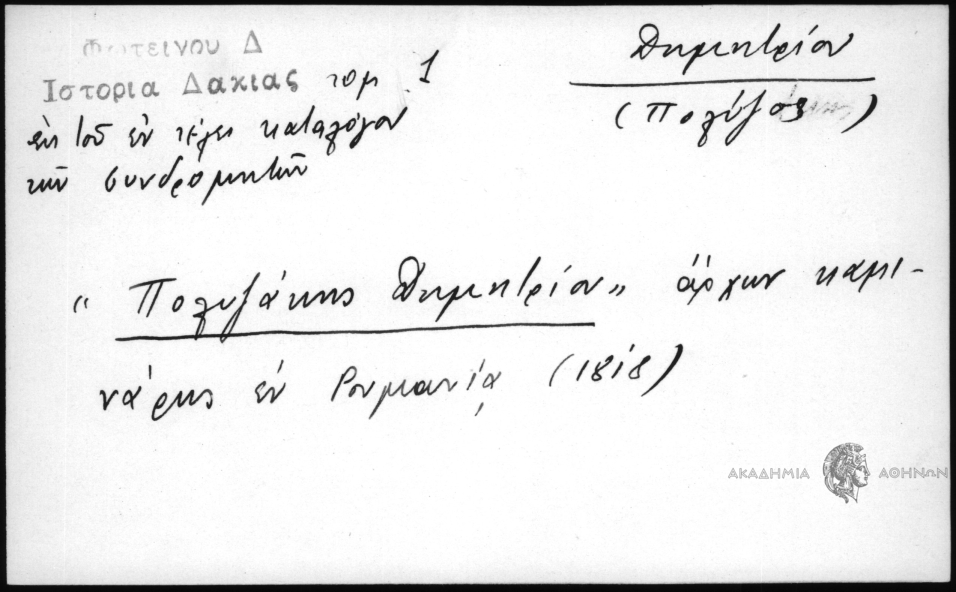 Φωτεινου Δ
Ιστορια Δακιας τομ 1
εἰς τοῦ ἐν τέλει καταλόγου
τῶν συνδρομητῶν
Δημητρίου
(Πολύζος)
" Πολυζάκης Δημητρίου „ ἄρχων καμι-
νάρης ἐν Ρουμανίᾳ (1818)
ΑΚΑΔΗΜΙΑ ΑΘΗΝΩΝ